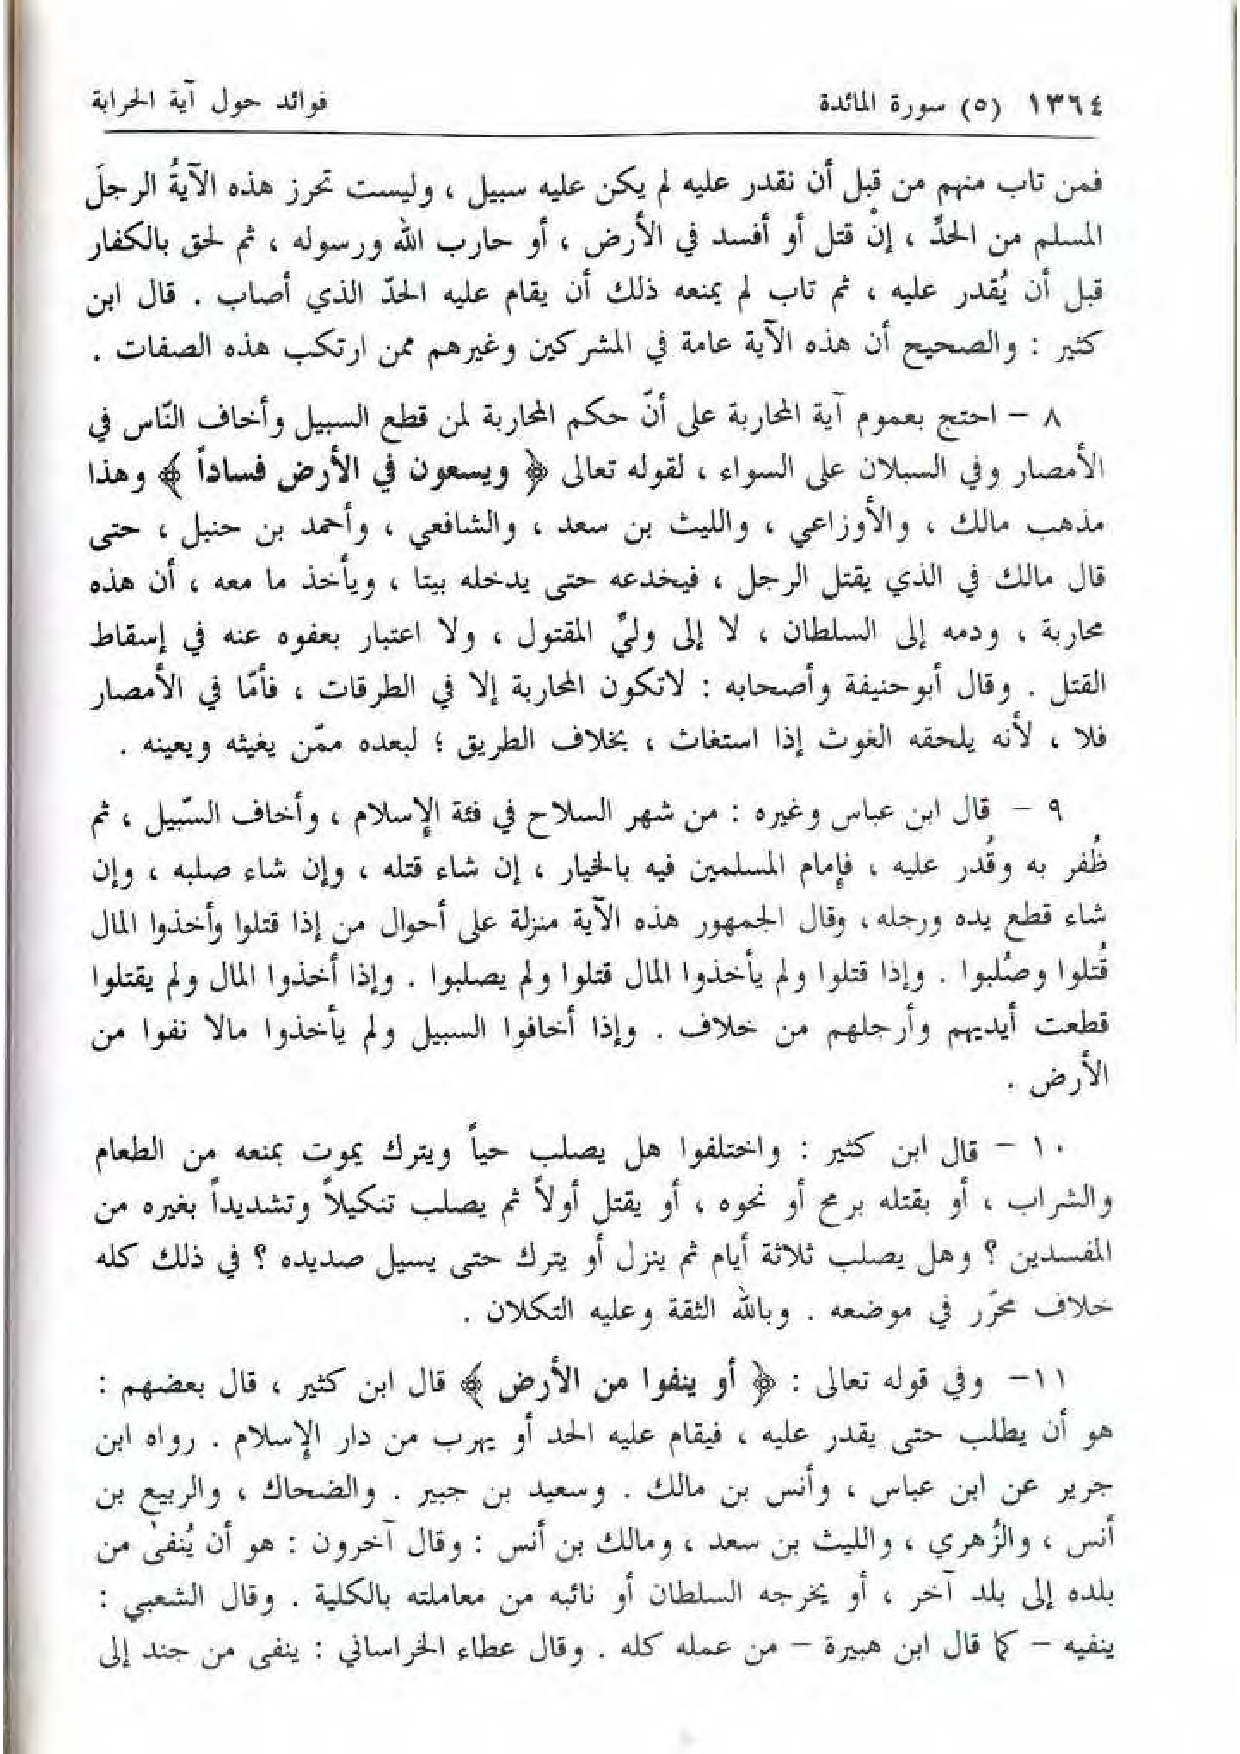 ١٣٦٤ (٥) سورة المائدة فوائد حول آية الحرابة
فمن تاب منهم من قبل أن نقدر عليه لم يكن عليه سبيل ، وليست تحرز هذه الآيةُ الرجلَ
المسلم من الحدِّ ، إنْ قتل أو أفسد في الأرض ، أو حارب الله ورسوله ، ثم لحق بالكفار
قبل أن يُقدر عليه ، ثم تاب لم يمنعه ذلك أن يقام عليه الحدّ الذي أصاب . قال ابن
كثير : والصحيح أن هذه الآية عامة في المشركين وغيرهم ممن ارتكب هذه الصفات .
٨ – احتج بعموم آية المحاربة على أنّ حكم المحاربة لمن قطع السبيل وأخاف النّاس في
الأمصار وفي السبلان على السواء ، لقوله تعالى ﴿ ويسعون في الأرض فساداً ﴾ وهذا
مذهب مالك ، والأوزاعي ، والليث بن سعد ، والشافعي ، وأحمد بن حنبل ، حتى
قال مالك في الذي يقتل الرجل ، فيخدعه حتى يدخله بيتا ، ويأخذ ما معه ، أن هذه
محاربة ، ودمه إلى السلطان ، لا إلى وليِّ المقتول ، ولا اعتبار بعفوه عنه في إسقاط
القتل . وقال أبوحنيفة وأصحابه : لاتكون المحاربة إلا في الطرقات ، فأمّا في الأمصار
فلا ، لأنه يلحقه الغوث إذا استغاث ، بخلاف الطريق ؛ لبعده ممّن يغيثه ويعينه .
٩ – قال ابن عباس وغيره : من شهر السلاح في فئة الإسلام ، وأخاف السّبيل ، ثم
ظُفر به وقُدر عليه ، فإمام المسلمين فيه بالخيار ، إن شاء قتله ، وإن شاء صلبه ، وإن
شاء قطع يده ورجله ، وقال الجمهور هذه الآية منزلة على أحوال من إذا قتلوا وأخذوا المال
قُتلوا وصُلبوا . وإذا قتلوا ولم يأخذوا المال قتلوا ولم يصلبوا . وإذا أخذوا المال ولم يقتلوا
قطعت أيديهم وأرجلهم من خلاف . وإذا أخافوا السبيل ولم يأخذوا مالا نفوا من
الأرض .
١٠ – قال ابن كثير : واختلفوا هل يصلب حياً ويترك يموت بمنعه من الطعام
والشراب ، أو بقتله برمح أو نحوه ، أو يقتل أولاً ثم يصلب تنكيلاً وتشديداً بغيره من
المفسدين ؟ وهل يصلب ثلاثة أيام ثم ينزل أو يترك حتى يسيل صديده ؟ في ذلك كله
خلاف محرّر في موضعه . وبالله الثقة وعليه التكلان .
١١– وفي قوله تعالى : ﴿ أو ينفوا من الأرض ﴾ قال ابن كثير ، قال بعضهم :
هو أن يطلب حتى يقدر عليه ، فيقام عليه الحد أو يهرب من دار الإسلام . رواه ابن
جرير عن ابن عباس ، وأنس بن مالك . وسعيد بن جبير . والضحاك ، والربيع بن
أنس ، والزُهري ، والليث بن سعد ، ومالك بن أنس : وقال آخرون : هو أن يُنفىٰ من
بلده إلى بلد آخر ، أو يخرجه السلطان أو نائبه من معاملته بالكلية . وقال الشعبي :
ينفيه – كما قال ابن هبيرة – من عمله كله . وقال عطاء الخراساني : ينفى من جند إلى